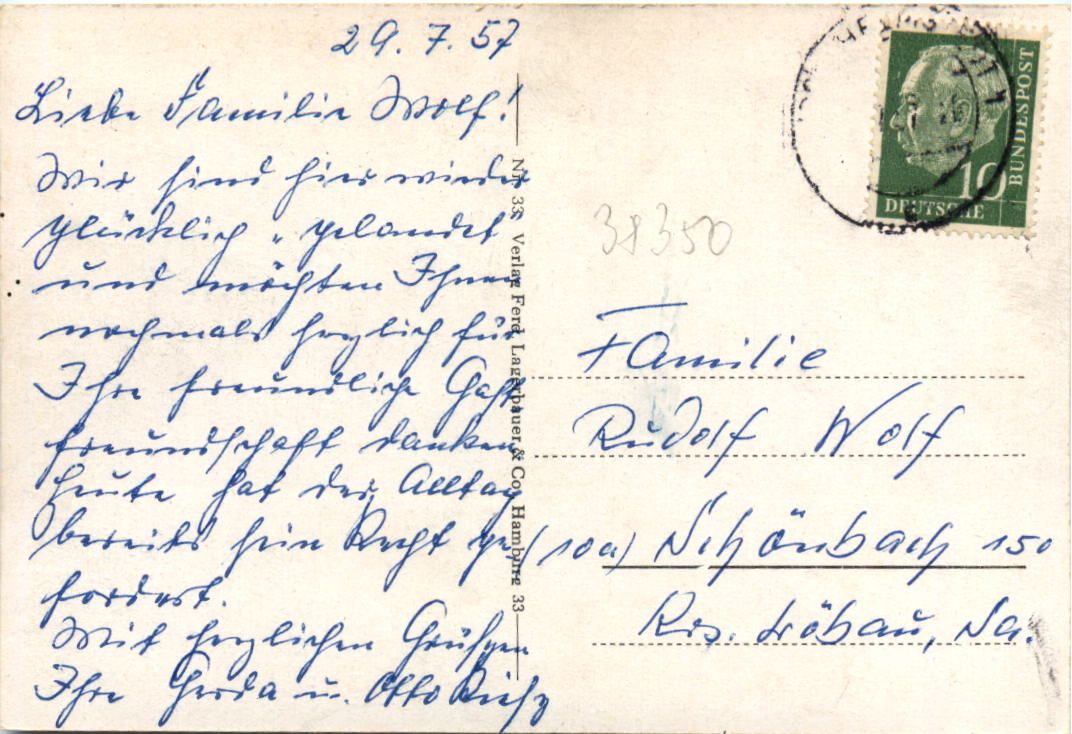 29. 7. 57
Liebe Familie Wolf!
Wir sind hier wieder
glücklich „gelandet
und möchten Ihnen
nochmals herzlich für
Ihre freundliche Gast
freundschaft danken
Heute hat der Alltag
bereits sein Recht ge-
fordert.
Mit herzlichen Grüßen
Ihre Gerda u. Otto
Nr. 33 Verlag Ferd. Lagerbauer & Co. Hamburg 33
DEUTSCHE
BUNDESPOST
10
38350
Familie
Rudolf Wolf
(10a) Schönbach 150
Krs. Löbau, Sa.